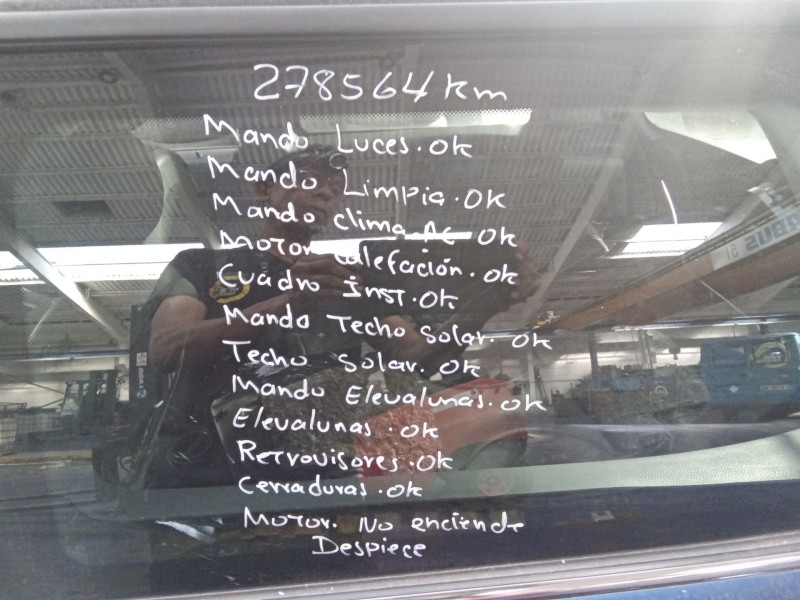 278564 km
Mando Luces. OK
Mando Limpia. OK
Mando clima AC OK
Motor calefación. OK
Cuadro Inst. OK
Mando Techo Solar. OK
Techo Solar. OK
Mando Elevalunas. OK
Elevalunas. OK
Retrovisores. OK
Cerraduras. OK
Motor. No enciende
Despiece